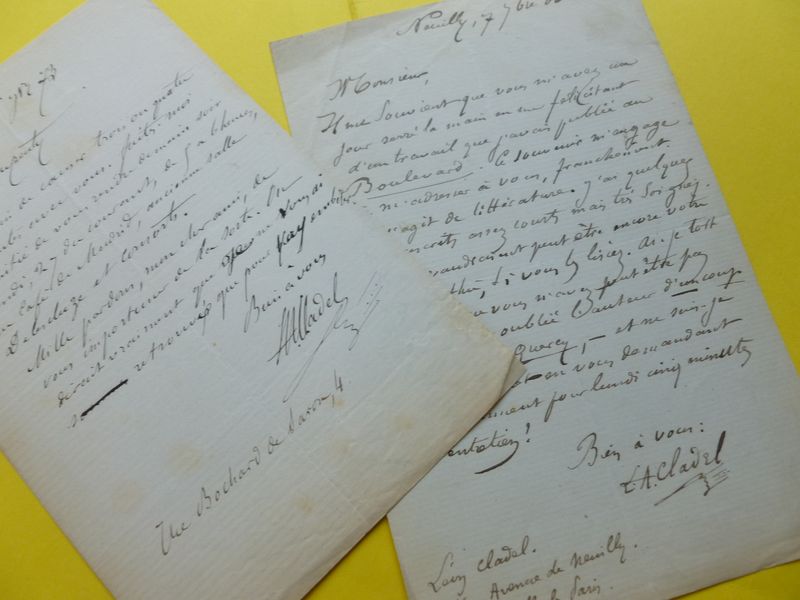 7bre 73
de causer trois ou quatre
avec vous. Faites-moi
de vous rendre demain soir
27 du courant, de 5 à 6 heures,
Café de Madrid, ancienne salle
Delescluze et consorts.
Mille pardons, mon cher ami, de
vous importuner de la sorte. On
dirait vraiment que je ne vous ai
retrouvé que pour
Bien à vous
Cladel
Rue Bochard de Saron, 4.
Neuilly, 7 7bre
Monsieur,
Il me souvient que vous m'avez un
jour serré la main en me félicitant
d'un travail que j'avais publié au
Boulevard. Ce souvenir m'engage
m'adresser à vous, franchement.
s'agit de littérature. J'ai quelques
assez courts mais très soignés.
peut être encore votre
si vous les lisiez. Ai-je tort
vous n'avez peut être pas
oublié l'auteur d'un
Quercy, – et ne suis-je
en vous demandant
pour lundi cinq minutes
entretien!
Bien à vous:
L.A. Cladel
Léon Cladel.
Avenue de Neuilly.
Paris